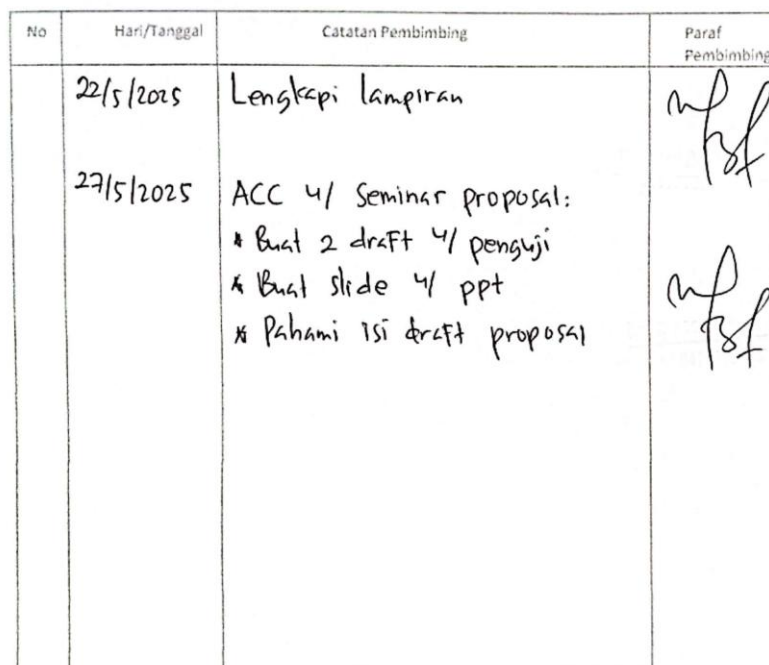 No Hari/Tanggal Catatan Pembimbing Paraf
Pembimbing
22/5/2025 Lengkapi lampiran
27/5/2025 ACC u/ Seminar proposal:
* Buat 2 draft u/ penguji
* Buat slide u/ ppt
* Pahami isi draft proposal